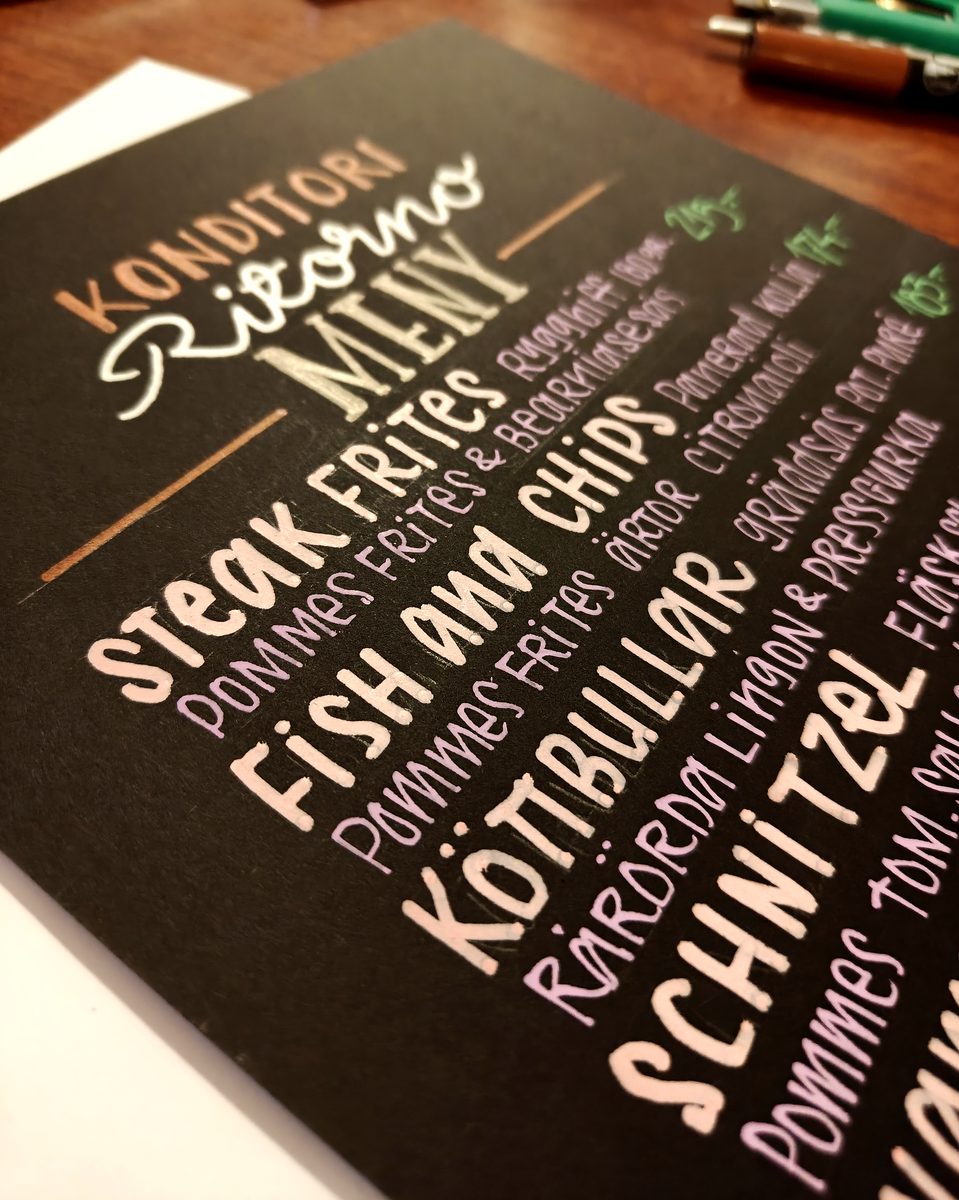 KONDITORI
Ritorno
MENY
STEAK FRITES RYGGBIFF 160GR. 219:-
POMMES FRITES & BEARNAISESÅS
FISH and CHIPS Panerad KOLJA 174:-
POMMES FRITES ÄRTOR CITRONAIOLI
KÖTTBULLAR GRÄDDSÅS POT.PURÉ 183:-
RÅRÖRDA LINGON & PRESSGURKA
SCHNITZEL FLÄSK
POMMES TOM.